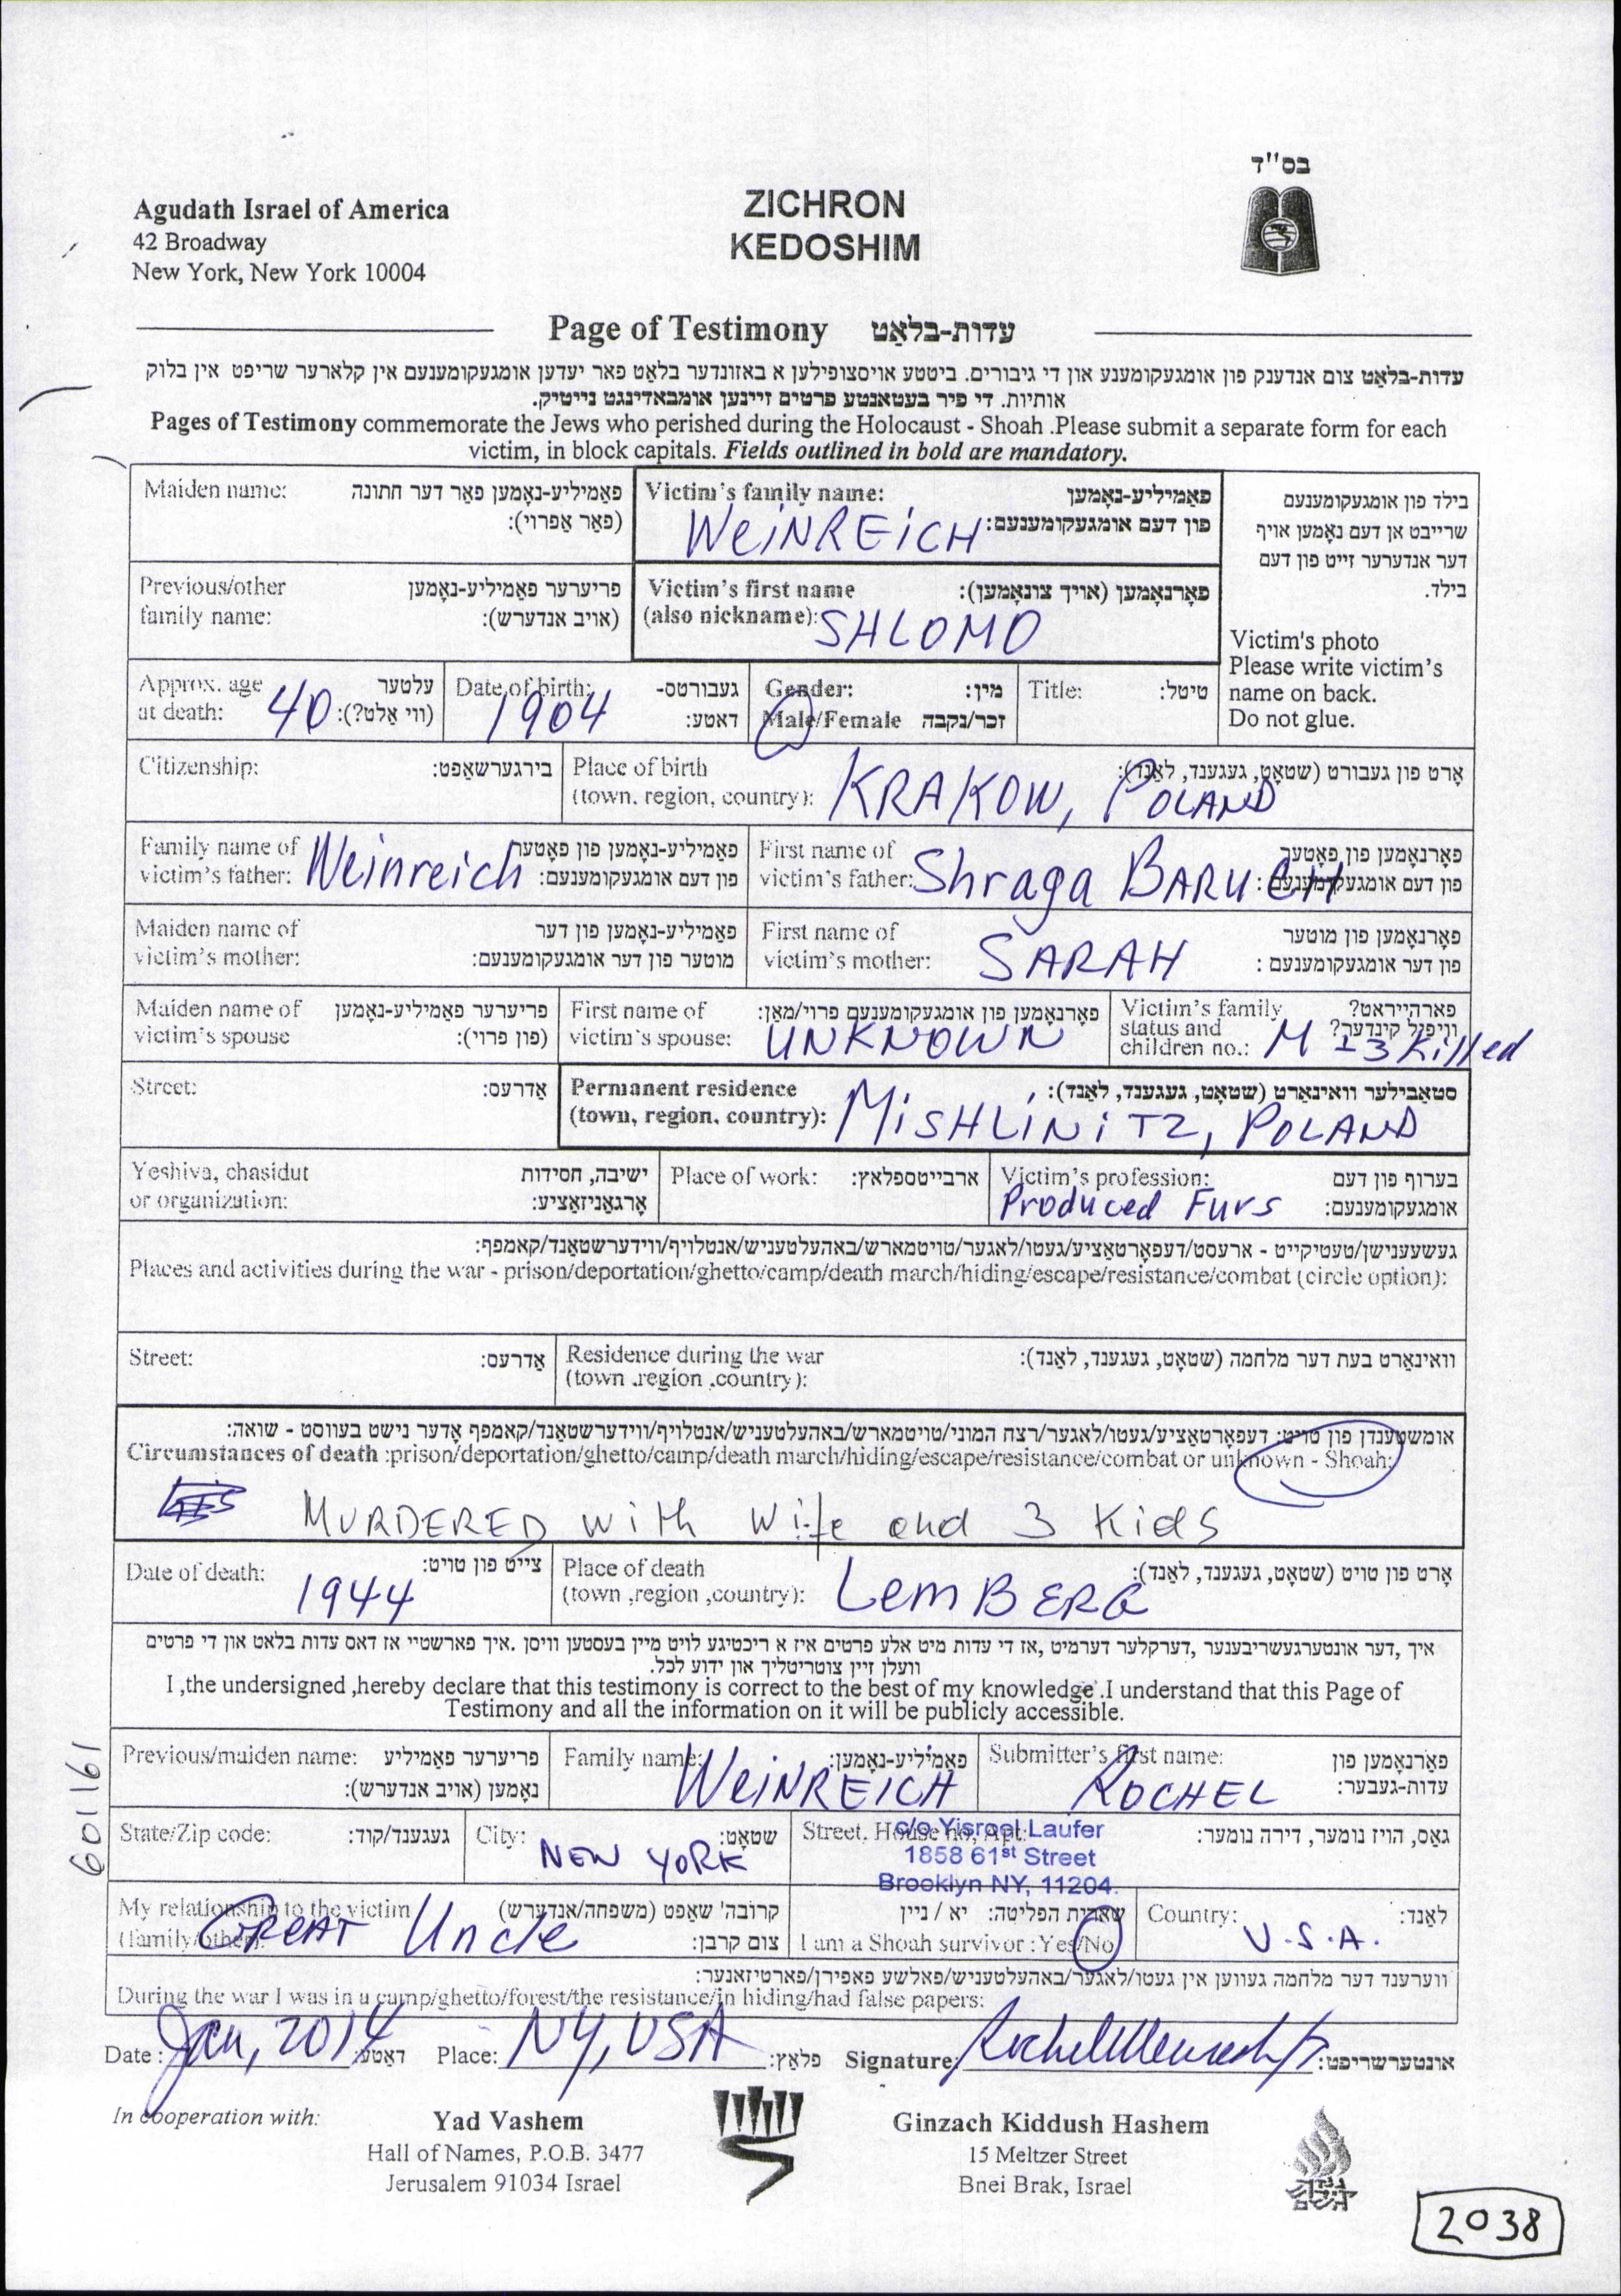 בס"ד
Agudath Israel of America
42 Broadway
New York, New York 10004
ZICHRON
KEDOSHIM
Page of Testimony עדות-בלאַט
עדות-בלאַט צום אנדענק פון אומגעקומענע און די גיבורים. ביטטע אויסצופילען א באזונדער בלאַט פאר יעדען אומגעקומענעם אין קלארער שריפט אין בלוק
אותיות. די פיר בעטאנטע פרטים זיינען אומבאדינגט נייטיק.
Pages of Testimony commemorate the Jews who perished during the Holocaust - Shoah .Please submit a separate form for each
victim, in block capitals. Fields outlined in bold are mandatory.
Maiden name: פאַמיליע-נאָמען פאַר דער חתונה
(פאַר אַפרוי):
Victim's family name: פאַמיליע-נאָמען
פון דעם אומגעקומענעם: WEiNREiCH
בילד פון אומגעקומענעם
שרייבט אן דעם נאָמען אויף
דער אנדערער זייט פון דעם
בילד.
Previous/other פריערער פאַמיליע-נאָמען
family name: (אויב אנדערש):
Victim's first name פאָרנאָמען (אויך צונאָמען):
(also nickname): SHLOMO
Victim's photo
Please write victim's
name on back.
Do not glue.
Approx. age עלטער
at death: 40 (ווי אַלט?):
Date of birth: געבורטס-
1904 דאַטע:
Gender: מין:
Male/Female זכר/נקבה
Title: טיטל:
Citizenship: בירגערשאַפט:
Place of birth אָרט פון געבורט (שטאָט, געגענד, לאַנד):
(town. region, country): KRAKOW, POLAND
Family name of פאַמיליע-נאָמען פון פאָטער
victim's father: Weinreich פון דעם אומגעקומענעם:
First name of פאָרנאָמען פון פאָטער
victim's father: Shraga BARUCH פון דעם אומגעקומענעם :
Maiden name of פאַמיליע-נאָמען פון דער
victim's mother: מוטער פון דער אומגעקומענעם:
First name of פאָרנאָמען פון מוטער
victim's mother: SARAH פון דער אומגעקומענעם :
Maiden name of פריערער פאַמיליע-נאָמען
victim's spouse (פון פרוי):
First name of פאָרנאָמען פון אומגעקומענעם פרוי/מאַן:
victim's spouse: UNKNOWN
Victim's family פארהייראט?
status and וויפיל קינדער?
children no.: M - 3 Killed
Street: אַדרעס:
Permanent residence סטאַבילער וואינאַרט (שטאָט, געגענד, לאַנד):
(town, region, country): MiSHLiNiTZ, POLAND
Yeshiva, chasidut ישיבה, חסידות
or organization: אָרגאַניזאַציע:
Place of work: ארבייטספלאץ:
Victim's profession: בערוף פון דעם
Produced Furs אומגעקומענעם:
געשעענישן/טעטיקייט - ארעסט/דעפּאָרטאַציע/געטו/לאגער/טויטמארש/באהעלטעניש/אנטלויף/ווידערשטאַנד/קאמפף:
Places and activities during the war - prison/deportation/ghetto/camp/death march/hiding/escape/resistance/combat (circle option):
Street: אַדרעס:
Residence during the war וואינאַרט בעת דער מלחמה (שטאָט, געגענד, לאַנד):
(town .region .country):
אומשטענדן פון טויט: דעפּאָרטאַציע/געטו/לאגער/רצח המוני/טויטמארש/באהעלטעניש/אנטלויף/ווידערשטאַנד/קאמפף אָדער נישט בעוווסט - שואה:
Circumstances of death :prison/deportation/ghetto/camp/death march/hiding/escape/resistance/combat or unknown - Shoah:
MURDERED with Wife and 3 Kids
Date of death: צייט פון טויט:
1944
Place of death אָרט פון טויט (שטאָט, געגענד, לאַנד):
(town ,region ,country): LemBERG
איך ,דער אונטערגעשריבענער ,דערקלער דערמיט ,אז די עדות מיט אלע פרטים איז א ריכטיגע לויט מיין בעסטען וויסן .איך פארשטיי אז דאס עדות בלאט און די פרטים
וועלן זיין צוטריטליך און ידוע לכל.
I ,the undersigned ,hereby declare that this testimony is correct to the best of my knowledge .I understand that this Page of
Testimony and all the information on it will be publicly accessible.
Previous/maiden name: פריערער פאַמיליע
נאָמען (אויב אנדערש):
Family name: פאַמיליע-נאָמען:
WEiNREiCH
Submitter's first name: פאָרנאָמען פון
ROCHEL עדות-געבער:
State/Zip code: געגענד/קוד:
City: שטאָט:
NEW YORK
Street, House no, Apt: גאַס, הויז נומער, דירה נומער:
c/o Yisroel Laufer
1858 61st Street
Brooklyn NY, 11204.
My relationship to the victim קרובה' שאַפט (משפחה/אנדערש)
(family/other): GREAT Uncle צום קרבן:
שארית הפליטה: יא / ניין
I am a Shoah survivor : Yes/No
Country: לאַנד:
U.S.A.
ווערענד דער מלחמה געווען אין געטו/לאגער/באהעלטעניש/פאלשע פאפירן/פארטיזאנער:
During the war I was in a camp/ghetto/forest/the resistance/in hiding/had false papers:
Date : Jan, 2014 דאַטע: Place: NY, USA פלאַץ: Signature אונטערשריפט:
In cooperation with:
Yad Vashem
Hall of Names, P.O.B. 3477
Jerusalem 91034 Israel
Ginzach Kiddush Hashem
15 Meltzer Street
Bnei Brak, Israel
601161
2038